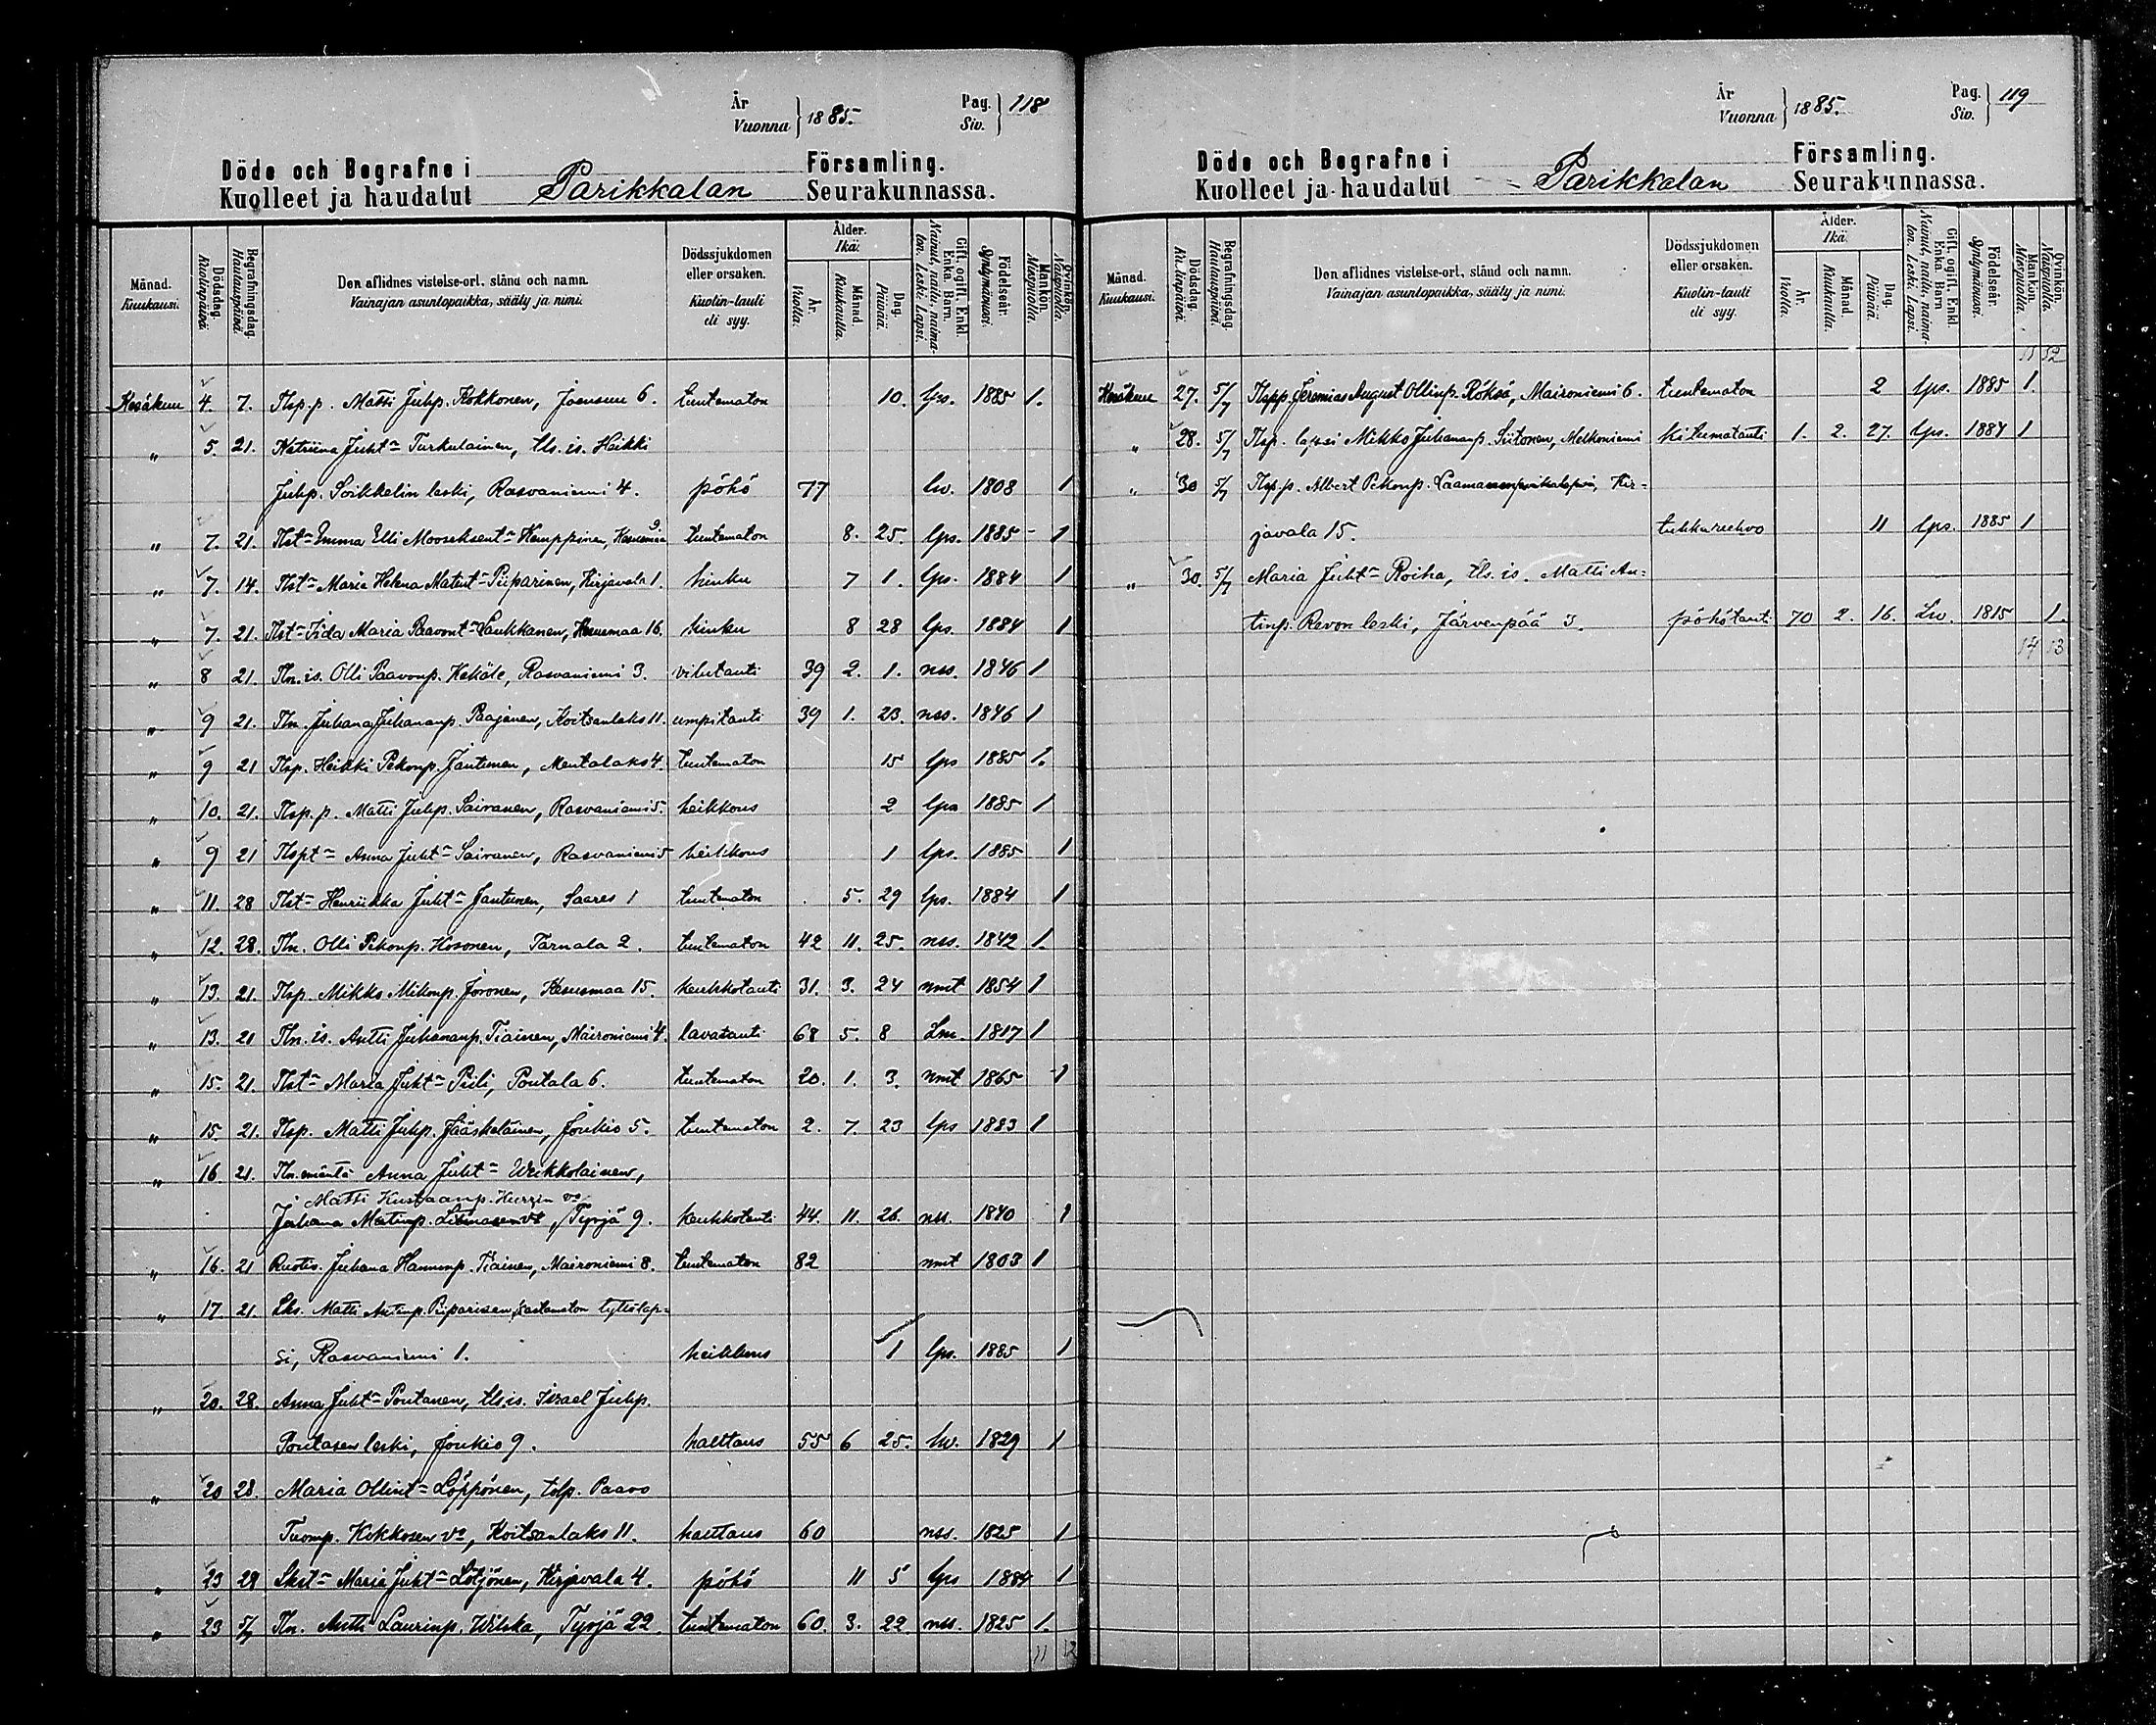 År
Vuonna } 1885.
Pag.
Siv. } 118
Döde och Begrafne i Parikkalan Församling.
Kuolleet ja haudatut Seurakunnassa.
Månad. Kuukausi.
Dödsdag. Kuolinpäivä.
Begrafningsdag. Hautauspäivä.
Den aflidnes vistelse-ort, stånd och namn.
Vainajan asuntopaikka, sääty ja nimi.
Dödssjukdomen eller orsaken.
Kuolin-tauti eli syy.
Ålder. Ikä.
År. Vuotta.
Månad. Kuukautta.
Dag. Päivää.
Gift, ogift, Enkl. Enka. Barn.
Nainut, naitu, naimaton. Leski. Lapsi.
Födelseår. Syntymävuosi.
Mankön. Miespuolia.
Qvinkön. Naispuolia.
Kesäkuu 4. 7. Tlsp.p. Matti Juhp. Kokkonen, Joensuu 6. tuntematon 10. lps. 1885 1.
" 5. 21. Katriina Juht= Turkulainen, tls. is. Heikki
Juhp. Soikkelin leski, Rasvaniemi 4. pöhö 77 lw. 1808 1
" 7. 21. Tlst= Emma Elli Mooseksent= Kemppinen, Kesusmaa 9. tuntematon 8. 25. lps. 1885 - 1
" 7. 14. Tlst= Maria Helena Matint= Piiparinen, Kirjavala 1. hinku 7 1. lps. 1884 1
" 7. 21. Tlst= Iida Maria Paavont= Laukkanen, Kesusmaa 16. hinku 8 28 lps. 1884 1
" 8 21. Tln. is. Olli Paavonp. Kekäle, Rasvaniemi 3. vilutauti 39 2. 1. nss. 1846 1
" 9 21. Tln. Juhana Juhananp. Paajanen, Koitsanlaks 11. umpitauti 39 1. 23. nss. 1846 1
" 9 21 Tlsp. Heikki Pekonp. Jantunen, Mentalaks 4. tuntematon 15 lps 1885 1.
" 10. 21. Tlsp.p. Matti Juhp. Sairanen, Rasvaniemi 5. heikkous 2 lps 1885 1
" 9 21 Tlspt= Anna Juht= Sairanen, Rasvaniemi 5 heikkous 1 lps. 1885 1
" 11. 28 Tlst= Henriikka Juht= Jantunen, Saares 1 tuntematon 5. 29 lps. 1884 1
" 12. 28. Tln. Olli Pekonp. Kosonen, Tarnala 2. tuntematon 42 11. 25. nss. 1842 1.
" 13. 21. Tlsp. Mikko Mikonp. Joronen, Kesusmaa 15. keuhkotauti 31. 3. 24 nmt 1854 1
" 13. 21 Tln. is. Antti Juhananp. Tiainen, Maironiemi 4. lavatauti 68 5. 8 Lm. 1817 1
" 15. 21. Tlst= Maria Juht= Piili, Poutala 6. tuntematon 20. 1. 3. nmt 1865 1
" 15. 21. Tlsp. Matti Juhp. Jääskeläinen, Joukio 5. tuntematon 2. 7. 23 lps 1883 1
" 16 21. Tln. emäntä Anna Juht= Weikkolainen,
Matti Kustaanp. Hurrin vo
Juhana Matinp. vo, Tyrjä 9. keuhkotauti 44. 11. 26. nss. 1840 1
" 16. 21 Ruotis. Juhana Hannunp. Tiainen, Maironiemi 8. tuntematon 82 nmt 1803 1
" 17. 21. Lks. Matti Antinp. Piiparisen kastamaton tyttölap=
si, Rasvaniemi 1. heikkous 1 lps. 1885 1
" 20. 28. Anna Juht= Pontanen, tls is. Israel Juhp.
Pontasen leski, Joukio 9. halttaus 55 6 25. lw. 1829 1
" 20 28. Maria Ollint= Löppönen, tolp. Paavo
Tuomp. Kokkosen vo, Koitsanlaks 11. halttaus 60 nss. 1825 1
" 23 29 Lkst= Maria Juht= Lötjönen, Kirjavala 4. pöhö 11 5 lps 1884 1
" 23 5/7 Tln. Antti Laurinp. Wilska, Tyrjä 22. tuntematon 60. 3. 22 nss. 1825 1.
11 12
År
Vuonna } 1885.
Pag.
Siv. } 119
Döde och Begrafne i Parikkalan Församling.
Kuolleet ja haudatut Seurakunnassa.
Månad. Kuukausi.
Dödsdag. Kuolinpäivä.
Begrafningsdag. Hautauspäivä.
Den aflidnes vistelse-ort, stånd och namn.
Vainajan asuntopaikka, sääty ja nimi.
Dödssjukdomen eller orsaken.
Kuolin-tauti eli syy.
Ålder. Ikä.
År. Vuotta.
Månad. Kuukautta.
Dag. Päivää.
Gift, ogift, Enkl. Enka. Barn
Nainut, naitu, naimaton. Leski. Lapsi.
Födelseår. Syntymävuosi.
Mankön. Miespuolia.
Qvinkön. Naispuolia.
11 12
Kesäkuu 27. 5/7 Tlspp. Jeremias August Ollinp. Röksä, Maironiemi 6. tuntematon 2 lps. 1885 1.
" 28. 5/7 Tlsp. lapsi Mikko Juhananp. Siitonen, Melkoniemi kitumatauti 1. 2. 27. lps. 1884 1
" 30 5/7 Tlsp.p. Albert Pekonp. Kir=
javala 15. tuhkurokko 11 lps. 1885 1
" 30. 5/7 Maria Juht= Roiha, tls. is. Matti An=
tinp. Revon leski, Järvenpää 3. pöhötauti 70 2. 16. Lw. 1815 1.
14 13